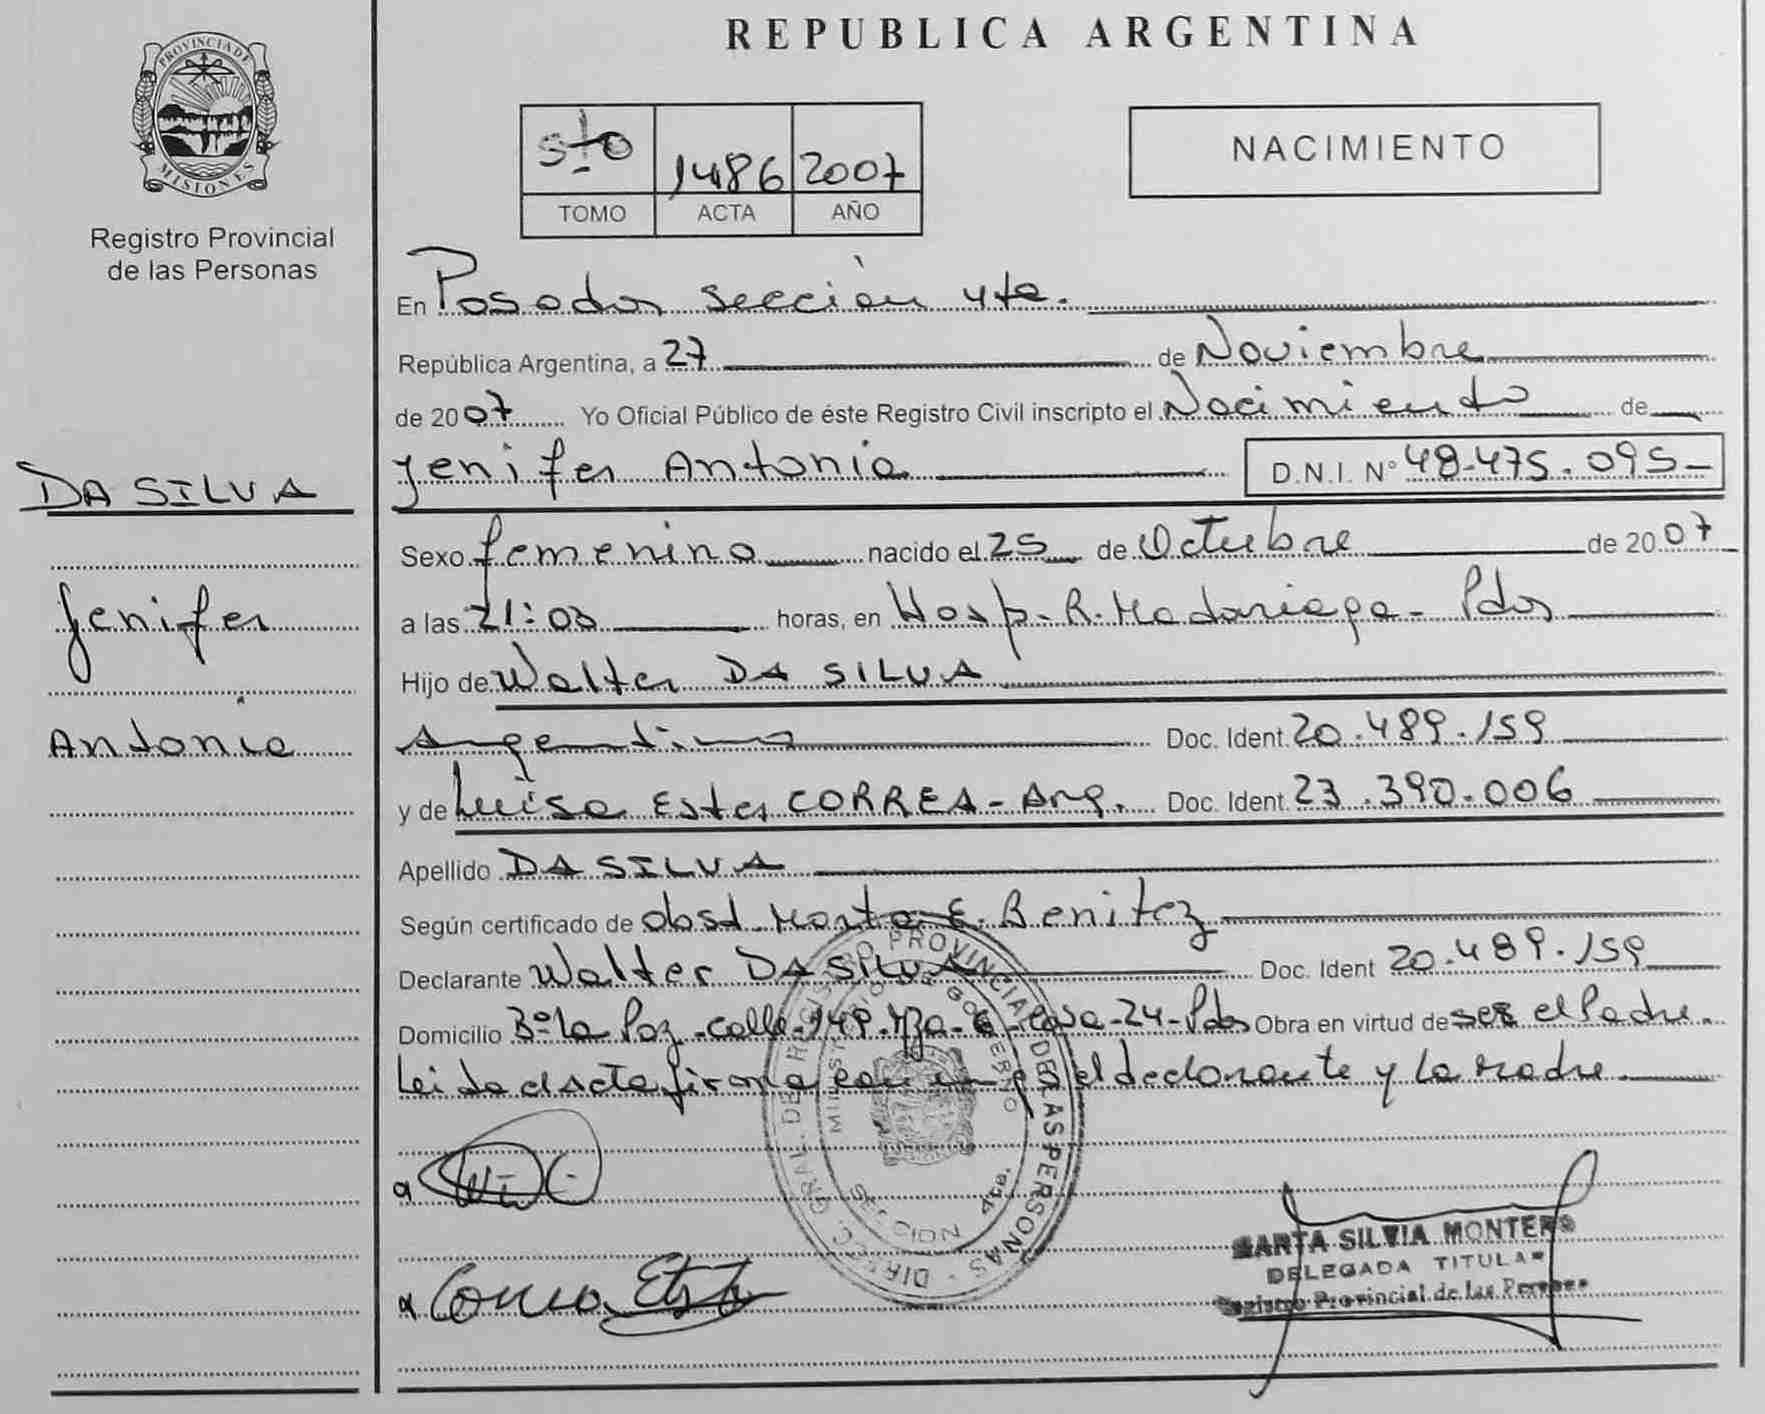 PROVINCIA DE
MISIONES
Registro Provincial
de las Personas
DA SILVA
Jenifer
Antonia
REPUBLICA ARGENTINA
5to 1486 2007
TOMO ACTA AÑO
NACIMIENTO
En Posadas sección 4ta.
República Argentina, a 27 de Noviembre
de 2007 Yo Oficial Público de éste Registro Civil inscripto el Nacimiento de
Jenifer Antonia D.N.I. Nº 48.475.095
Sexo femenino nacido el 25 de Octubre de 2007
a las 21:03 horas, en Hosp. R. Madariaga - Pdas
Hijo de Walter DA SILVA
Argentino Doc. Ident. 20.489.159
y de Luisa Ester CORREA - Arg. Doc. Ident. 23.390.006
Apellido DA SILVA
Según certificado de obst. Marta E. Benitez
Declarante Walter DA SILVA Doc. Ident 20.489.159
Domicilio Bº La Paz - calle 149 - Mza - 6 - Casa - 24 - Pdas Obra en virtud de ser el Padre.
Leida el acta firma con el declarante y la Madre.
DIRECC. GRAL. DE REGISTRO PROVINCIAL DE LAS PERSONAS
MINISTERIO DE GOBIERNO
SECCION 4ta.
Correa Ester
SILVIA MONTERO
DELEGADA TITULAR
Registro Provincial de las Personas